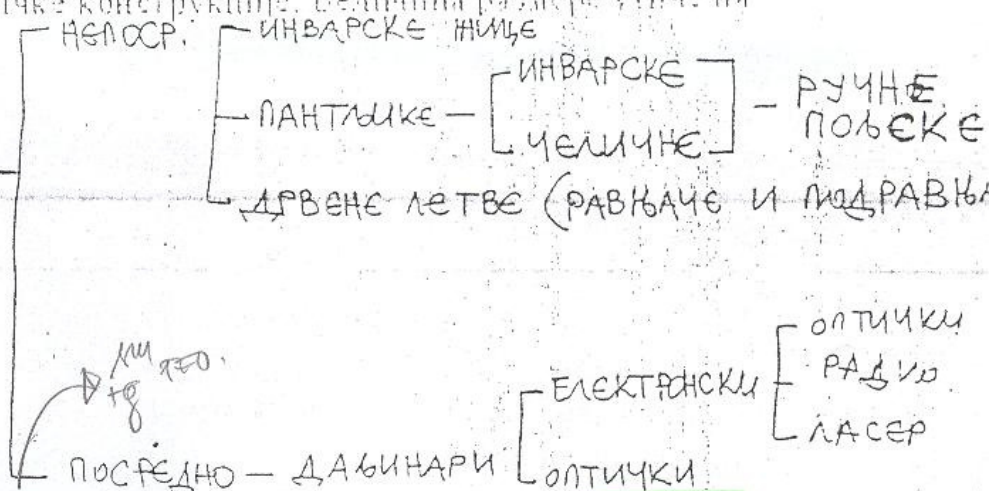 конструкције. Величина размере утиче на
НЕПОСР.
ИНВАРСКЕ ЖИЦЕ
ПАНТЉИКЕ
ИНВАРСКЕ
ЧЕЛИЧНЕ
РУЧНЕ
ПОЉСКЕ
ДРВЕНЕ ЛЕТВЕ (РАВЊАЧЕ И ПОДРАВЊА
ПОСРЕДНО
ДАЉИНАРИ
ЕЛЕКТРОНСКИ
ОПТИЧКИ
РАДИО
ЛАСЕР
ОПТИЧКИ